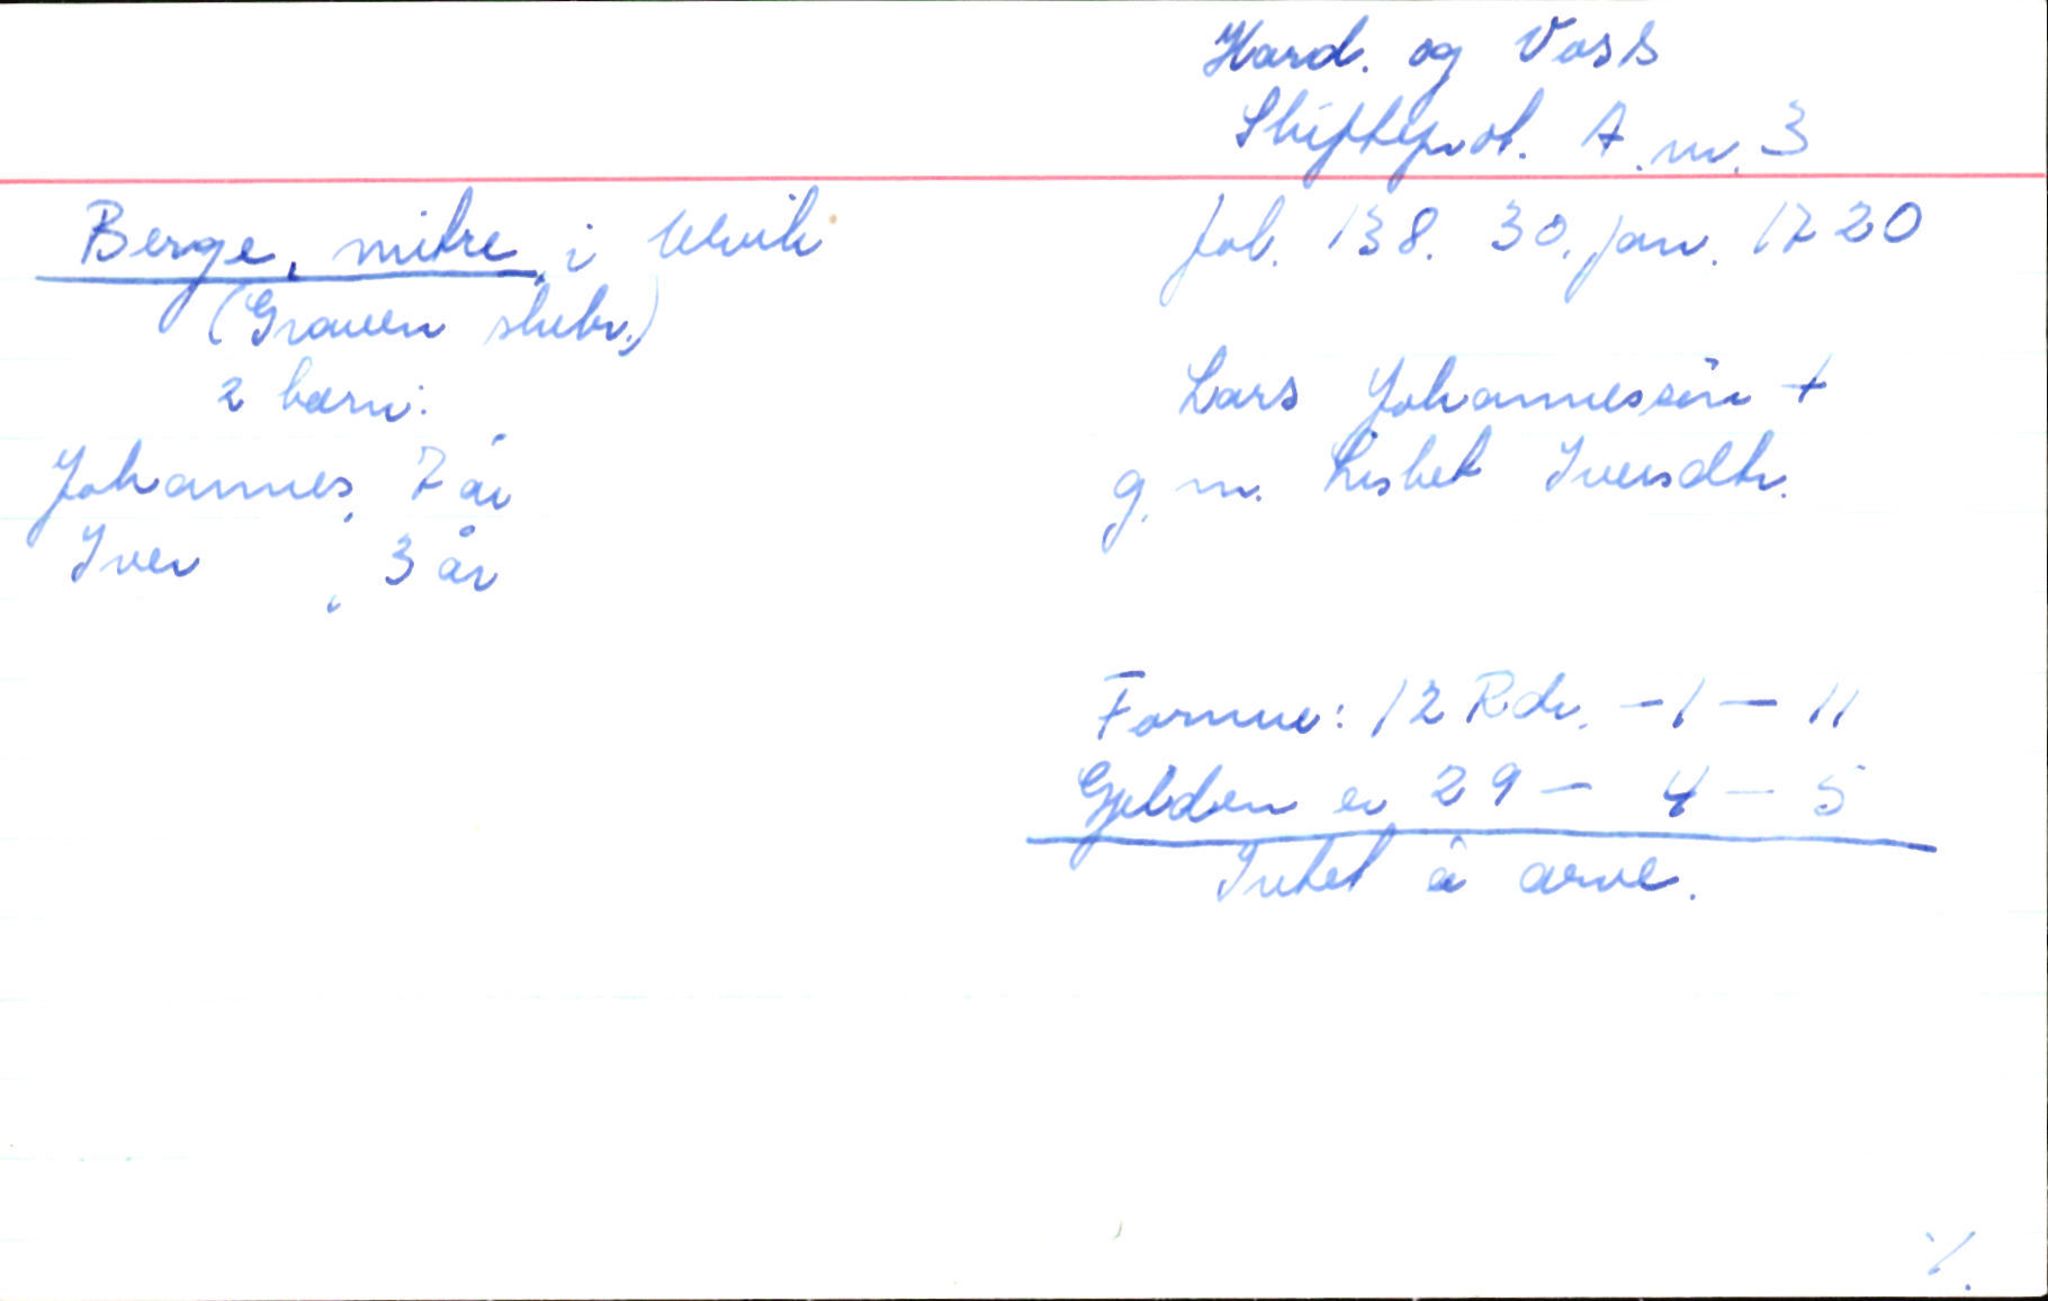 Hard. og Voss
Skifteprot. A. nr. 3
Berge, mitre, i Ulvik
fol. 138. 30. jan. 1720
(Graven skibr.)
2 barn:
Lars Johannesson +
Johannes, 7 år
g. m. Lisbet Iversdtr.
Iver , 3 år
Formue: 12 Rdr. - 1 - 11
Gjelden er 29 - 4 - 5
Intet å arve.
%.